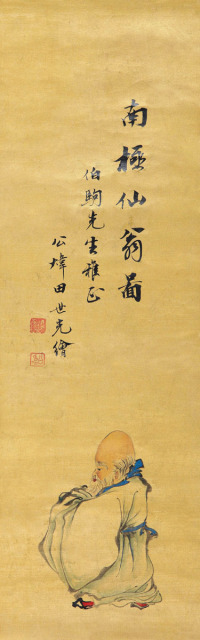 南極仙翁圖
伯駒先生雅正
公煒田世光繪